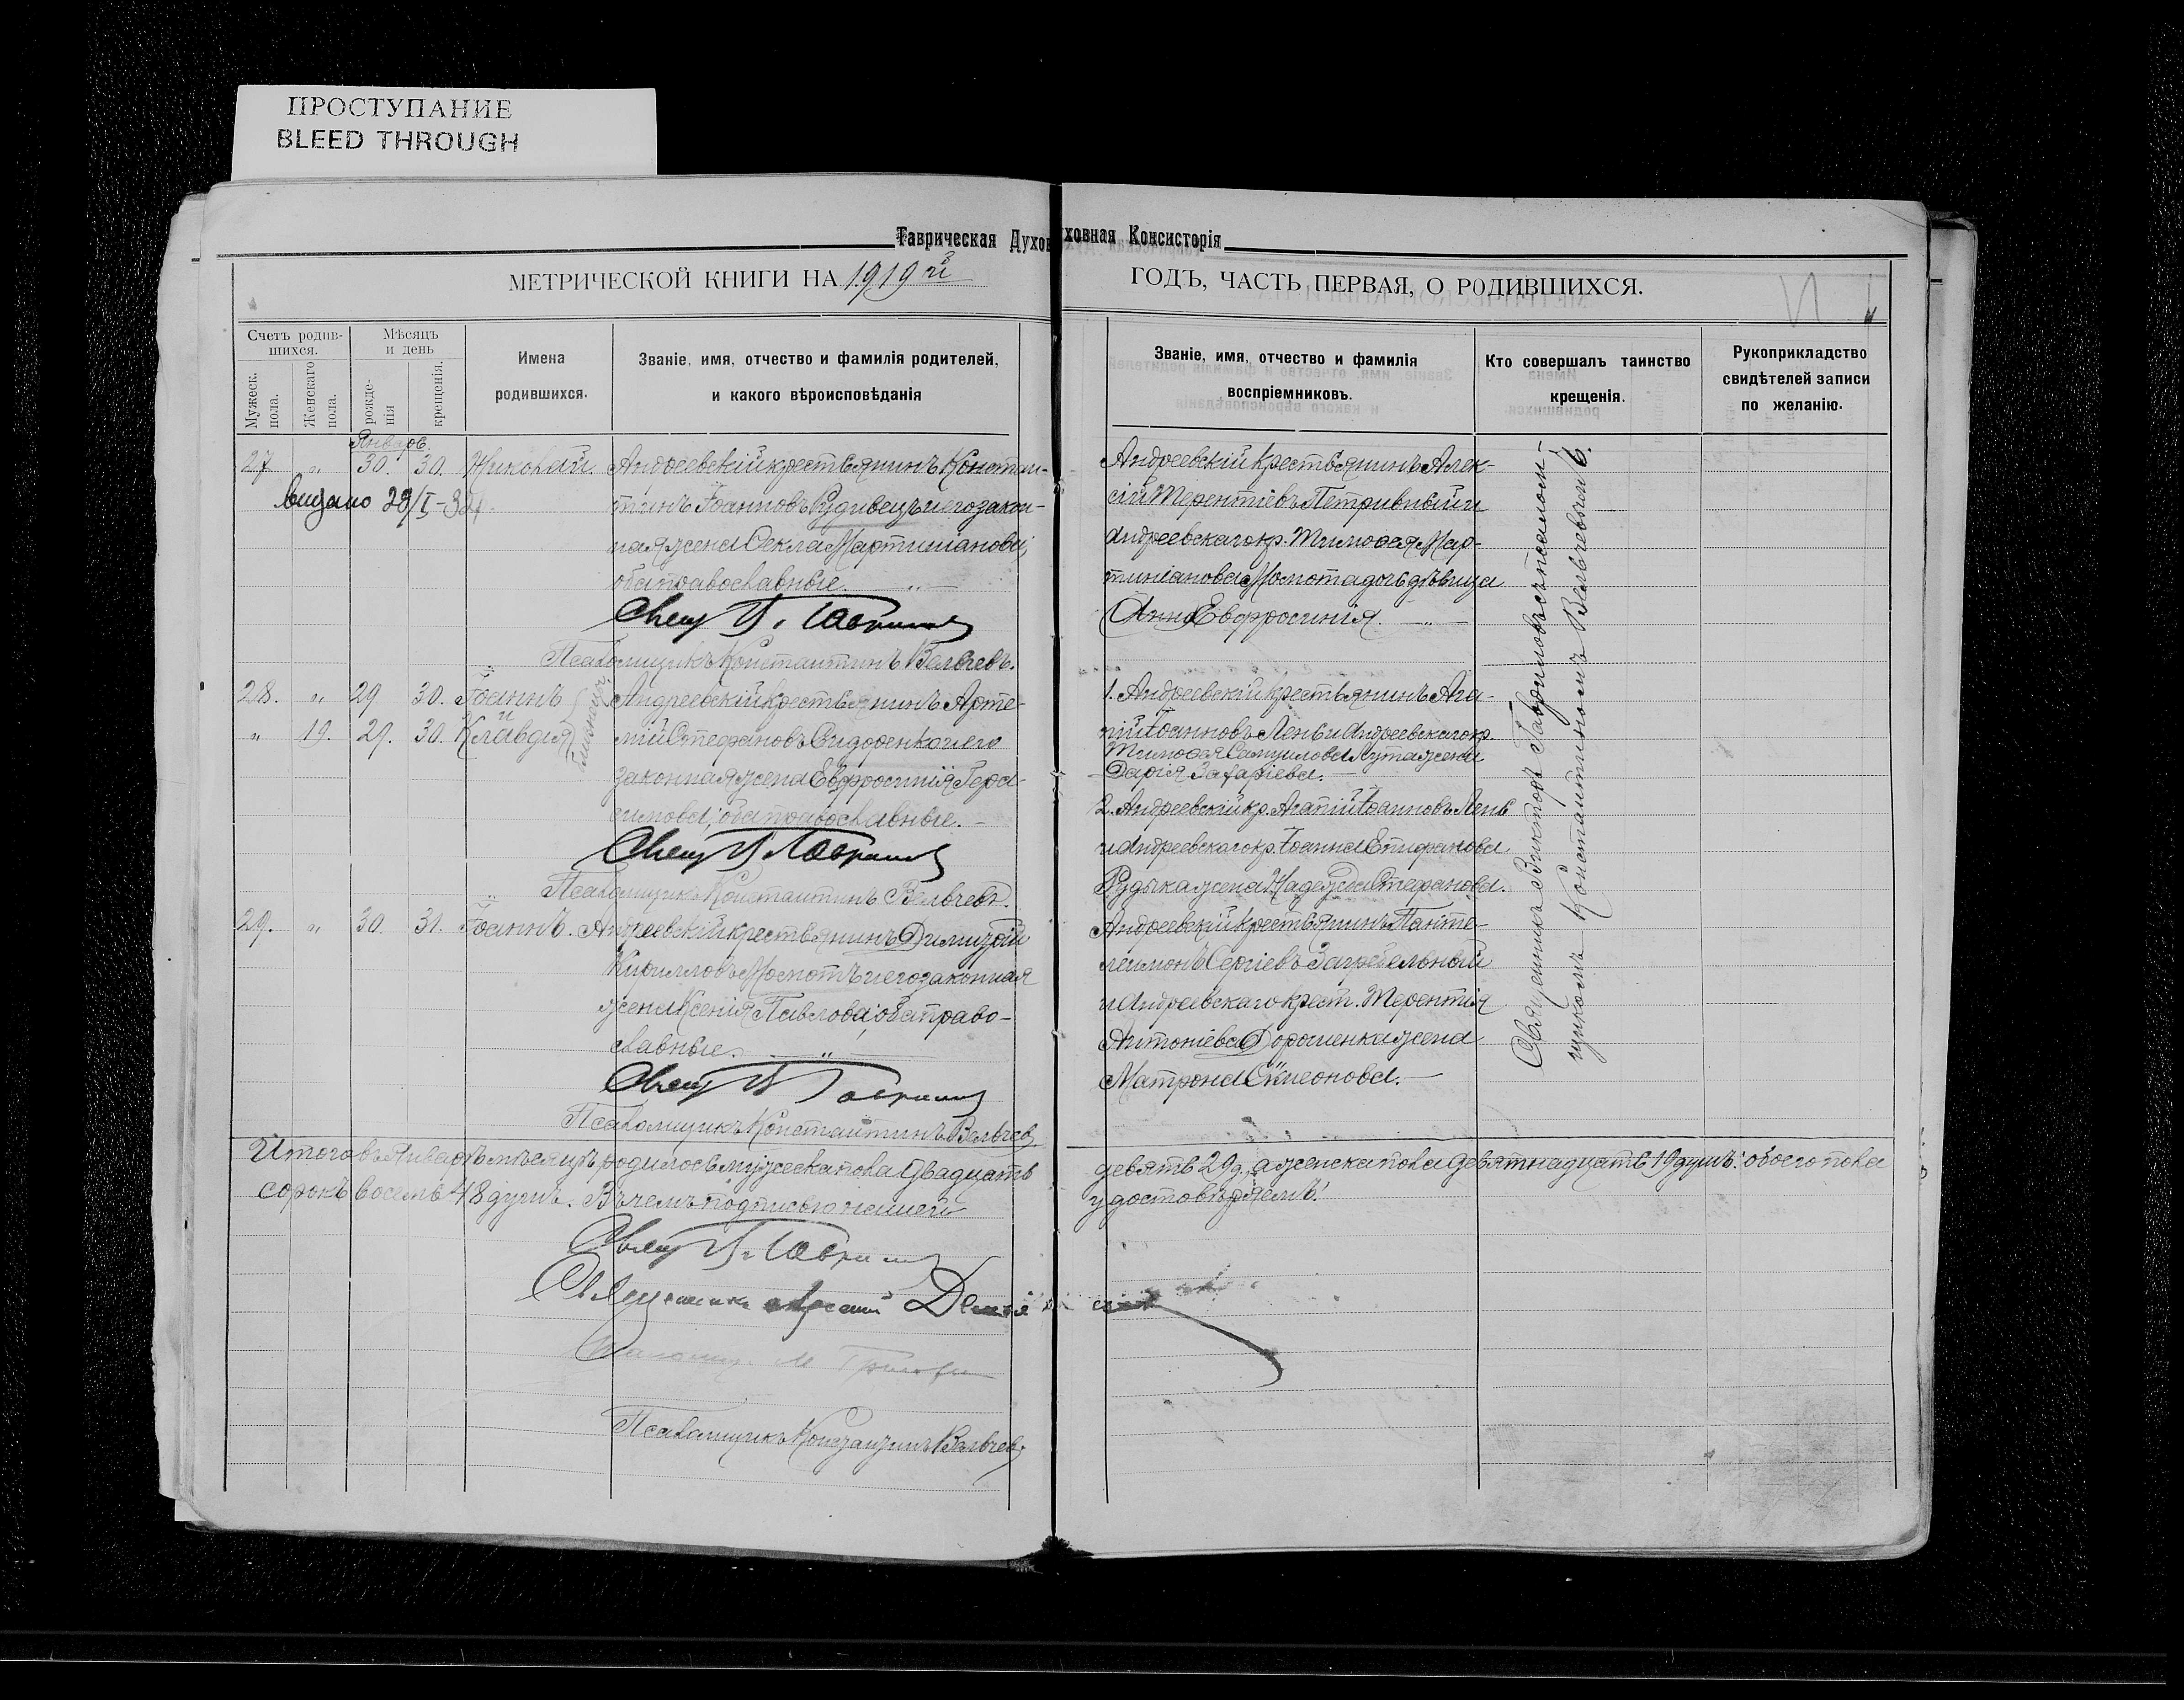 ПРОСТУПАНИЕ
BLEED THROUGH
Таврическая Духовная Консисторія
МЕТРИЧЕСКОЙ КНИГИ НА 1919й ГОДЪ, ЧАСТЬ ПЕРВАЯ, О РОДИВШИХСЯ.
Счетъ родив-
шихся.
Мужеск.
пола.
Женскаго
пола.
Мѣсяцъ
и день
рожде-
нія
крещенія.
Имена
родившихся.
Званіе, имя, отчество и фамилія родителей,
и какого вѣроисповѣданія
Званіе, имя, отчество и фамилія
воспріемниковъ.
Кто совершалъ таинство
крещенія.
Рукоприкладство
свидѣтелей записи
по желанію.
Январь.
27 " 30. 30. Николай. Андреевскій крестьянинъ Констан-
видано 28/I-
тинъ Іоанновъ Рудивецъ и его закон-
ная жена Ѳекла Мартиніанова;
оба православные.
Свящ. В. Гавриловъ
Псаломщикъ Константинъ Вальчевъ.
Андреевскій крестьянинъ Алек-
сій Терентіевъ Петривный и
Андреевскаго кр. Тимоѳея Мар-
тиніанова Момота дочь дѣвица
Евфросинія.
28. " 29 30. Іоаннъ
и
" 19. 29. 30. Клавдія
близнец.
Андреевскій крестьянинъ Арте-
мій Стефановъ Сидоренко и его
законная жена Евфросинія Гера-
симова; оба православные.
Свящ. В. Гавриловъ
Псаломщикъ Константинъ Вальчевъ.
1. Андреевскій крестьянинъ Ага-
пій Іоанновъ Лень и Андреевскаго кр.
Тимоѳея Самуилова Лута жена
Дарія Захаріева.
2. Андреевскій кр. Агапій Іоанновъ Лень
и Андреевскаго кр. Іоанна Епифанова
Рудыка жена Надежда Стефанова.
29. " 30. 31. Іоаннъ. Андреевскій крестьянинъ Димитрій
Кирилловъ Момотъ и его законная
жена Ксенія Павлова; оба право-
славные.
Свящ. В. Гавриловъ
Псаломщикъ Константинъ Вальчев
Андреевскій крестьянинъ Панте-
леимонъ Сергіевъ Загребельный
и Андреевскаго крест. Терентія
Антоніева Дорошенка жена
Матрона Симеонова.
Священникъ Викторъ Гавриловъ съ псалом-
щикомъ Константиномъ Вальчевымъ.
Итого въ Январѣ мѣсяцѣ родилось мужеска пола двадцать девять 29 д., а женска пола девятнадцать 19 душъ: обоего пола
сорокъ восемь 48 душъ. Въ чемъ подписью нашей удостовѣряемъ!
Свящ. В. Гаврилов
Священникъ
Псаломщ. М.
Псаломщикъ Константинъ Вальчев